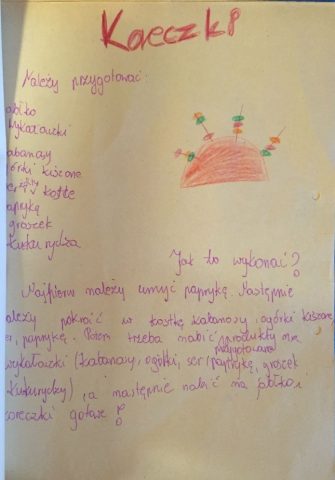 Koreczki
Należy przygotować:
abłko
wykałaczki
abanosy
górki kiszone
er żółty w kostkę
aprykę
groszek
kukurydza
Jak to wykonać?
Najpierw należy umyć paprykę. Następnie
ależy pokroić w kostkę kabanosy, ogórki kiszone
er, paprykę. Potem trzeba nabić produkty na
przygotowane
wykałaczki (kabanosy, ogórki, ser paprykę, groszek
kukurydzy), a następnie nabić na jabłko.
oreczki gotowe!